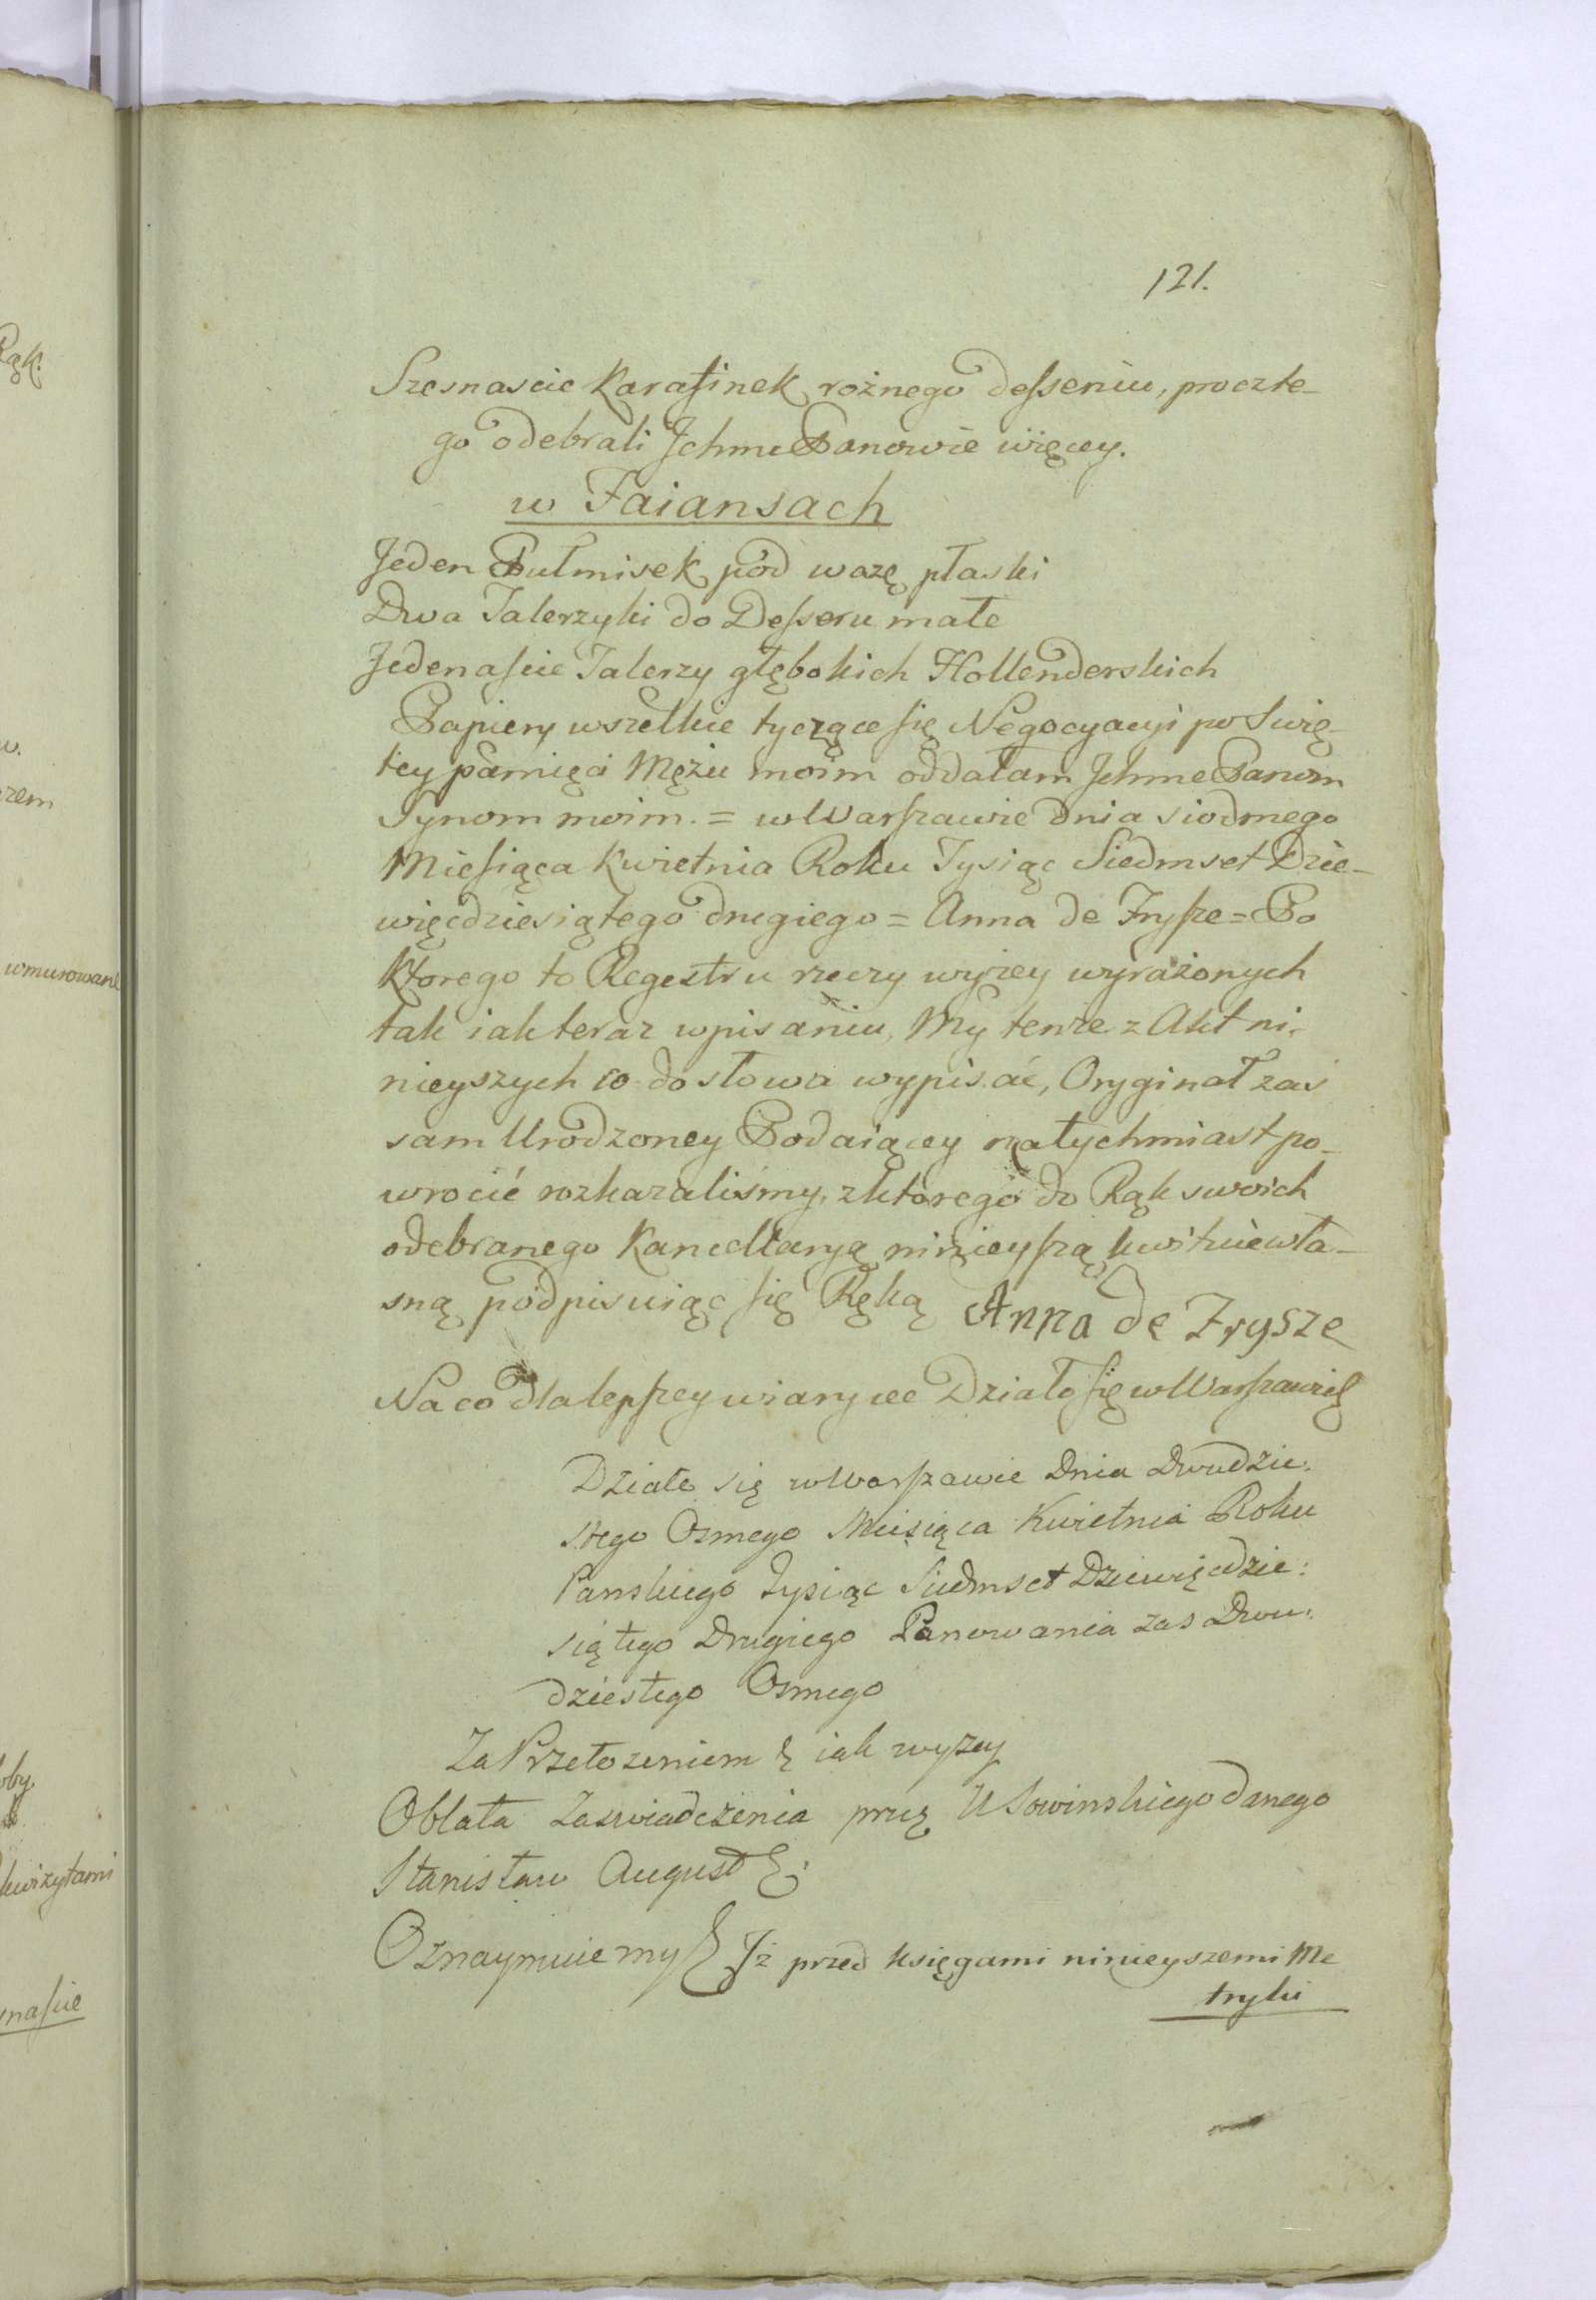 121.
Szesnascie Karafinek rożnego desseniu, proczte-
go odebrali Jchmc Panowie więcey.
w Faiansach
Jeden Pułmisek pod wazę płaski
Dwa Talerzyki do Desseru małe
Jedenaście Talerzy głębokich Hollenderskich
Papiery wszelkie tyczące się Negocyacyi po Swię-
tey pamięci Mężu moim oddałam Jchmc Panom
Synom moim. = w Warszawie dnia siodmego
Miesiąca Kwietnia Roku Tysiąc Siedmset Dzie-
więćdziesiątego drugiego = Anna de Frysze = Po
Ktorego to Regestru rzeczy wyżey wyrażonych
tak iak teraz wpisaniu, My tenże z Akt ni-
nieyszych co do słowa wypisać, Oryginał zaś
sam Urodzoney Podaiącey natychmiast po-
wrocić rozkazaliśmy, z ktorego do Rąk swoich
odebranego Kancellaryą ninieyszą kwituie wła-
sną podpisuiąc się Ręką Anna de Frysze
Na co dla lepszey wiary etc Działo się w Warszawie
Działo się w Warszawie Dnia Dwudzie:
stego Osmego Miesiąca Kwietnia Roku
Panskiego Tysiąc Siedmset Dziewięćdzie:
siątego Drugiego Panowania zas Dwu:
dziestego Osmego
Za Przełożeniem & iak wyżey
Oblata Zaswiadczenia przez U Sowinskiego danego
Stanisław August &:
Oznaymuiemy & Jż przed księgami ninieyszemi Me
tryki
Rąk:
w.
rzem
wmurowane
oby
kwizytami
naście